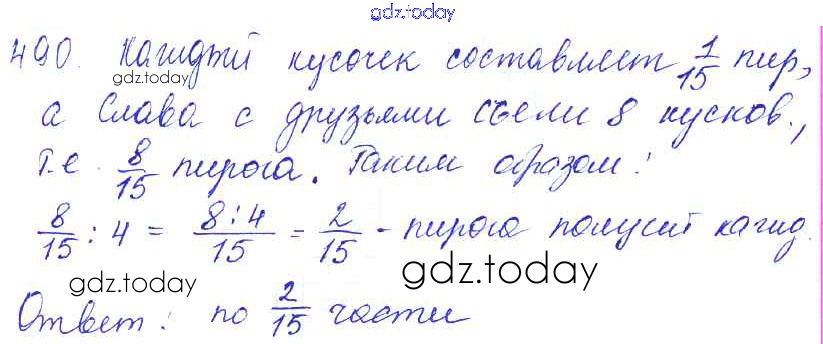 gdz.today
490. Кагиджй кусочек составляет 1/15 пир,
gdz.today
а Слава с друзьями съели 8 кусков.,
т.е. 8/15 пирога. Таким образом:
8/15 : 4 = 8:4/15 = 2/15 - пирога получит кагид.
gdz.today
gdz.today
Ответ: по 2/15 части